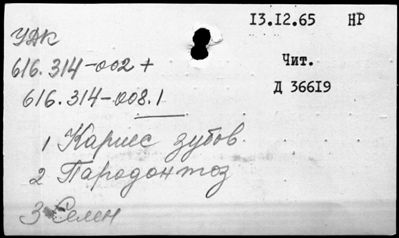 13.12.65 НР
УДК
616.314-002 +
Чит.
616.314-008.1
Д 36619
1 Кариес зубов.
2 Парадонтоз
3 Селен